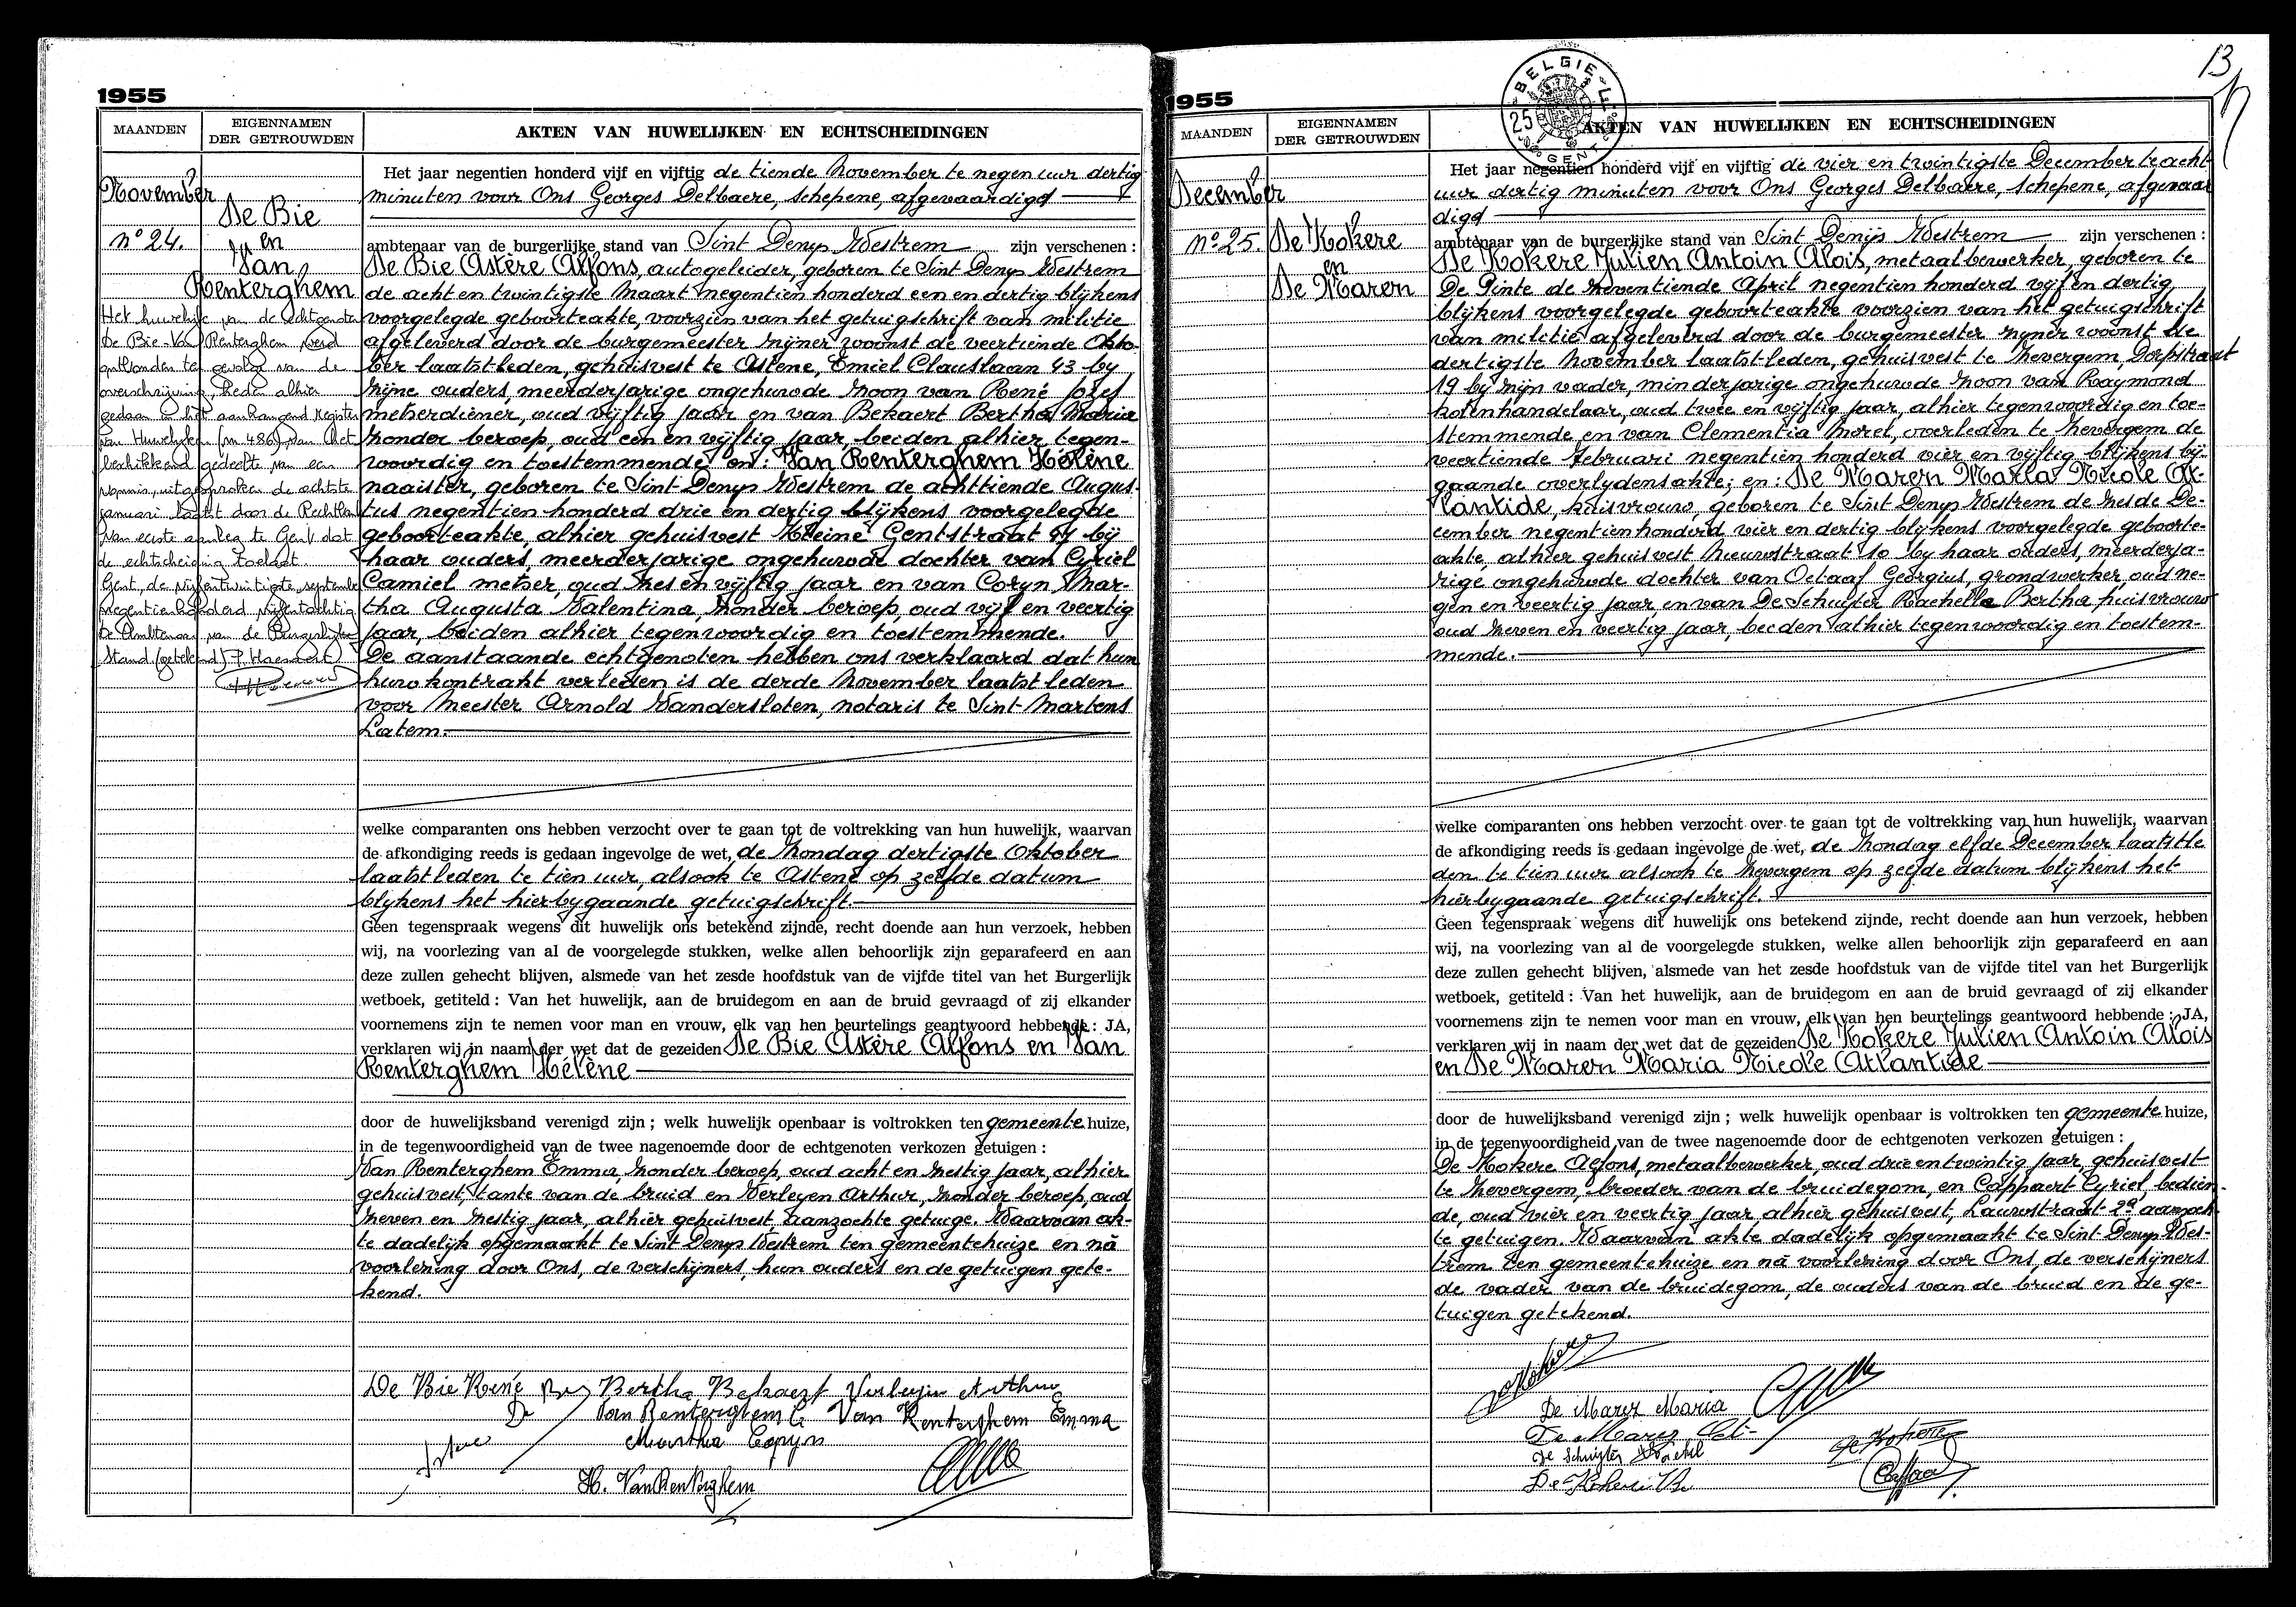 1955
MAANDEN
EIGENNAMEN
DER GETROUWDEN
AKTEN VAN HUWELIJKEN EN ECHTSCHEIDINGEN
November
n° 24.
De Bie
en
Van
Renterghem
Het huwelijk van de echtgenoten
De Bie-Van Renterghem werd
ontbonden ten gevolge van de
overschrijving, heden alhier
gedaan in het aanhangend register
van Huwelijken (nr 486), van het
beschikkend gedeelte van een
vonnis, uitgesproken de achtste
januari laatst door de Rechtbank
van eerste aanleg te Gent dat
de echtscheiding toelaat.
Gent, de vijfentwintigste september
negentienhonderd vijfentachtig
De Ambtenaar van de Burgerlijke
Stand (getekend)
Het jaar negentien honderd vijf en vijftig de tiende November te negen uur dertig
minuten voor Ons Georges Delbaere, schepene, afgevaardigd
ambtenaar van de burgerlijke stand van Sint Denys Westrem zijn verschenen :
De Bie Astère Alfons, autogeleider, geboren te Sint Denys Westrem
de acht en twintigste Maart negentien honderd een en dertig blijkens
voorgelegde geboorteakte, voorzien van het getuigschrift van militie
afgeleverd door de burgemeester zijner woonst de veertiende Okto-
ber laatstleden, gehuisvest te Astene, Emiel Clauslaan 43 by
zijne ouders, meerderjarige ongehuwde zoon van René Jozef
metserdiener, oud vijftig jaar en van Bekaert Bertha Maria
zonder beroep, oud een en vijftig jaar, beiden alhier tegen-
woordig en toestemmende en : Van Renterghem Hélène
naaister, geboren te Sint-Denys Westrem de achttiende Augus-
tus negentien honderd drie en dertig blijkens voorgelegde
geboorteakte, alhier gehuisvest Kleine Gentstraat 67 bij
haar ouders, meerderjarige ongehuwde dochter van Cyriel
Camiel metser, oud zes en vijftig jaar en van Coryn Mar-
tha Augusta Valentina, zonder beroep, oud vijf en veertig
jaar, beiden alhier tegenwoordig en toestemmende.
De aanstaande echtgenoten hebben ons verklaard dat hun
huwkontrakt verleden is de derde November laatst leden
voor Meester Arnold Vandersloten, notaris te Sint-Martens
Latem.
welke comparanten ons hebben verzocht over te gaan tot de voltrekking van hun huwelijk, waarvan
de afkondiging reeds is gedaan ingevolge de wet, de Zondag dertigste Oktober
laatstleden te tien uur, alsook te Astene op zelfde datum
blykens het hierbygaande getuigschrift.
Geen tegenspraak wegens dit huwelijk ons betekend zijnde, recht doende aan hun verzoek, hebben
wij, na voorlezing van al de voorgelegde stukken, welke allen behoorlijk zijn geparafeerd en aan
deze zullen gehecht blijven, alsmede van het zesde hoofdstuk van de vijfde titel van het Burgerlijk
wetboek, getiteld : Van het huwelijk, aan de bruidegom en aan de bruid gevraagd of zij elkander
voornemens zijn te nemen voor man en vrouw, elk van hen beurtelings geantwoord hebbende : JA,
verklaren wij in naam der wet dat de gezeiden De Bie Astère Alfons en Van
Renterghem Hélène
door de huwelijksband verenigd zijn ; welk huwelijk openbaar is voltrokken ten gemeente huize,
in de tegenwoordigheid van de twee nagenoemde door de echtgenoten verkozen getuigen :
Van Renterghem Emma, zonder beroep, oud acht en zestig jaar, alhier
gehuisvest, tante van de bruid en Verleyen Arthur, zonder beroep, oud
zeven en zestig jaar, alhier gehuisvest, aanzochte getuige. Waarvan ak-
te dadelijk opgemaakt te Sint Denys Westrem ten gemeentehuize en nà
voorlezing door Ons, de verschijners, hun ouders en de getuigen gete-
kend.
De Bie René Bertha Bekaert Verleyen Arthur
De Van Renterghem C Van Renterghem Emma
Martha Coryn
H. Van Renterghem
1955
13
BELGIE
25
GENT
MAANDEN
EIGENNAMEN
DER GETROUWDEN
AKTEN VAN HUWELIJKEN EN ECHTSCHEIDINGEN
December
n° 25.
De Kokere
en
De Maren
Het jaar negentien honderd vijf en vijftig de vier en twintigste December te acht
uur dertig minuten voor Ons Georges Delbaere, schepene, afgevaar
digd
ambtenaar van de burgerlijke stand van Sint Denijs Westrem zijn verschenen :
De Kokere Julien Antoin Alois, metaalbewerker, geboren te
De Pinte de zeventiende April negentien honderd vijf en dertig,
blijkens voorgelegde geboorteakte voorzien van het getuigschrift
van militie afgeleverd door de burgemeester zijner woonst de
dertigste November laatst leden, gehuisvest te Zevergem, Dorpstraat
19 by zijn vader, minderjarige ongehuwde zoon van Raymond
kolenhandelaar, oud twee en vijftig jaar, alhier tegenwoordig en toe-
stemmende en van Clementia Moret, overleden te Zevergem de
veertiende Februari negentien honderd vier en vijftig blijkens bij-
gaande overlydensakte; en : De Maren Maria Nicole At-
lantide, huisvrouw, geboren te Sint Denys Westrem de zesde De-
cember negentienhonderd vier en dertig blykens voorgelegde geboorte-
akte, alhier gehuisvest Nieuwstraat 10 by haar ouders, meerderja-
rige ongehuwde dochter van Octaaf Georgius, grondwerker, oud ne-
gen en veertig jaar en van De Schuyter Rachella Bertha huisvrouw
oud zeven en veertig jaar, beiden alhier tegenwoordig en toestem-
mende.
welke comparanten ons hebben verzocht over te gaan tot de voltrekking van hun huwelijk, waarvan
de afkondiging reeds is gedaan ingevolge de wet, de Zondag elfde December laatstle
den te tien uur alsook te Zevergem op zelfde datum blijkens het
hierbygaande getuigschrift.
Geen tegenspraak wegens dit huwelijk ons betekend zijnde, recht doende aan hun verzoek, hebben
wij, na voorlezing van al de voorgelegde stukken, welke allen behoorlijk zijn geparafeerd en aan
deze zullen gehecht blijven, alsmede van het zesde hoofdstuk van de vijfde titel van het Burgerlijk
wetboek, getiteld : Van het huwelijk, aan de bruidegom en aan de bruid gevraagd of zij elkander
voornemens zijn te nemen voor man en vrouw, elk van hen beurtelings geantwoord hebbende : JA,
verklaren wij in naam der wet dat de gezeiden De Kokere Julien Antoin Alois
en De Maren Maria Nicole Atlantide
door de huwelijksband verenigd zijn ; welk huwelijk openbaar is voltrokken ten gemeente huize,
in de tegenwoordigheid van de twee nagenoemde door de echtgenoten verkozen getuigen :
De Kokere Alfons, metaalbewerker, oud drie en twintig jaar, gehuisvest
te Zevergem, broeder van de bruidegom, en Cappaert Cyriel, bedien-
de, oud vier en veertig jaar alhier gehuisvest, Lauwstraat 29 aanzoch
te getuigen. Waarvan akte dadelijk opgemaakt te Sint-Denys Wes-
trem ten gemeentehuize en nà voorlezing door Ons, de verschijners
de vader van de bruidegom, de ouders van de bruid en de ge-
tuigen getekend.
De Kokere
De Marez Maria
De Marez
De Schuyter Rachel
De Kokere